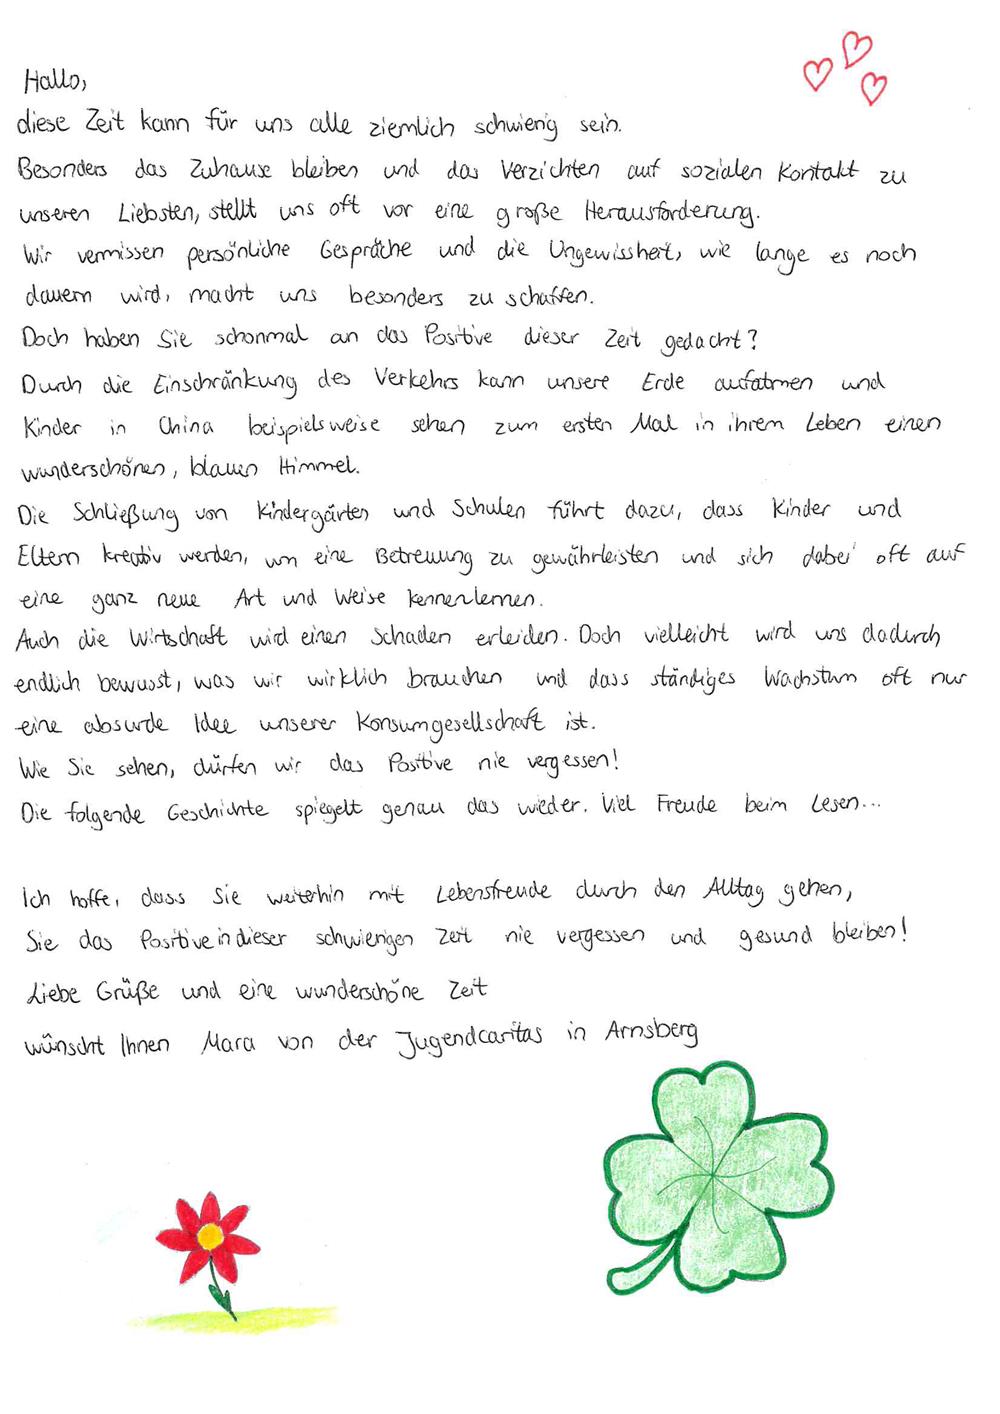 Hallo,
diese Zeit kann für uns alle ziemlich schwierig sein.
Besonders das Zuhause bleiben und das Verzichten auf sozialen Kontakt zu
unseren Liebsten, stellt uns oft vor eine große Herausforderung.
Wir vermissen persönliche Gespräche und die Ungewissheit, wie lange es noch
dauern wird, macht uns besonders zu schaffen.
Doch haben Sie schonmal an das Positive dieser Zeit gedacht?
Durch die Einschränkung des Verkehrs kann unsere Erde aufatmen und
Kinder in China beispielsweise sehen zum ersten Mal in ihrem Leben einen
wunderschönen, blauen Himmel.
Die Schließung von Kindergärten und Schulen führt dazu, dass Kinder und
Eltern kreativ werden, um eine Betreuung zu gewährleisten und sich dabei oft auf
eine ganz neue Art und Weise kennenlernen.
Auch die Wirtschaft wird einen Schaden erleiden. Doch vielleicht wird uns dadurch
endlich bewusst, was wir wirklich brauchen und dass ständiges Wachstum oft nur
eine absurde Idee unserer Konsumgesellschaft ist.
Wie Sie sehen, dürfen wir das Positive nie vergessen!
Die folgende Geschichte spiegelt genau das wieder. Viel Freude beim Lesen...
Ich hoffe, dass Sie weiterhin mit Lebensfreude durch den Alltag gehen,
Sie das Positive in dieser schwierigen Zeit nie vergessen und gesund bleiben!
Liebe Grüße und eine wunderschöne Zeit
wünscht Ihnen Mara von der Jugendcaritas in Arnsberg